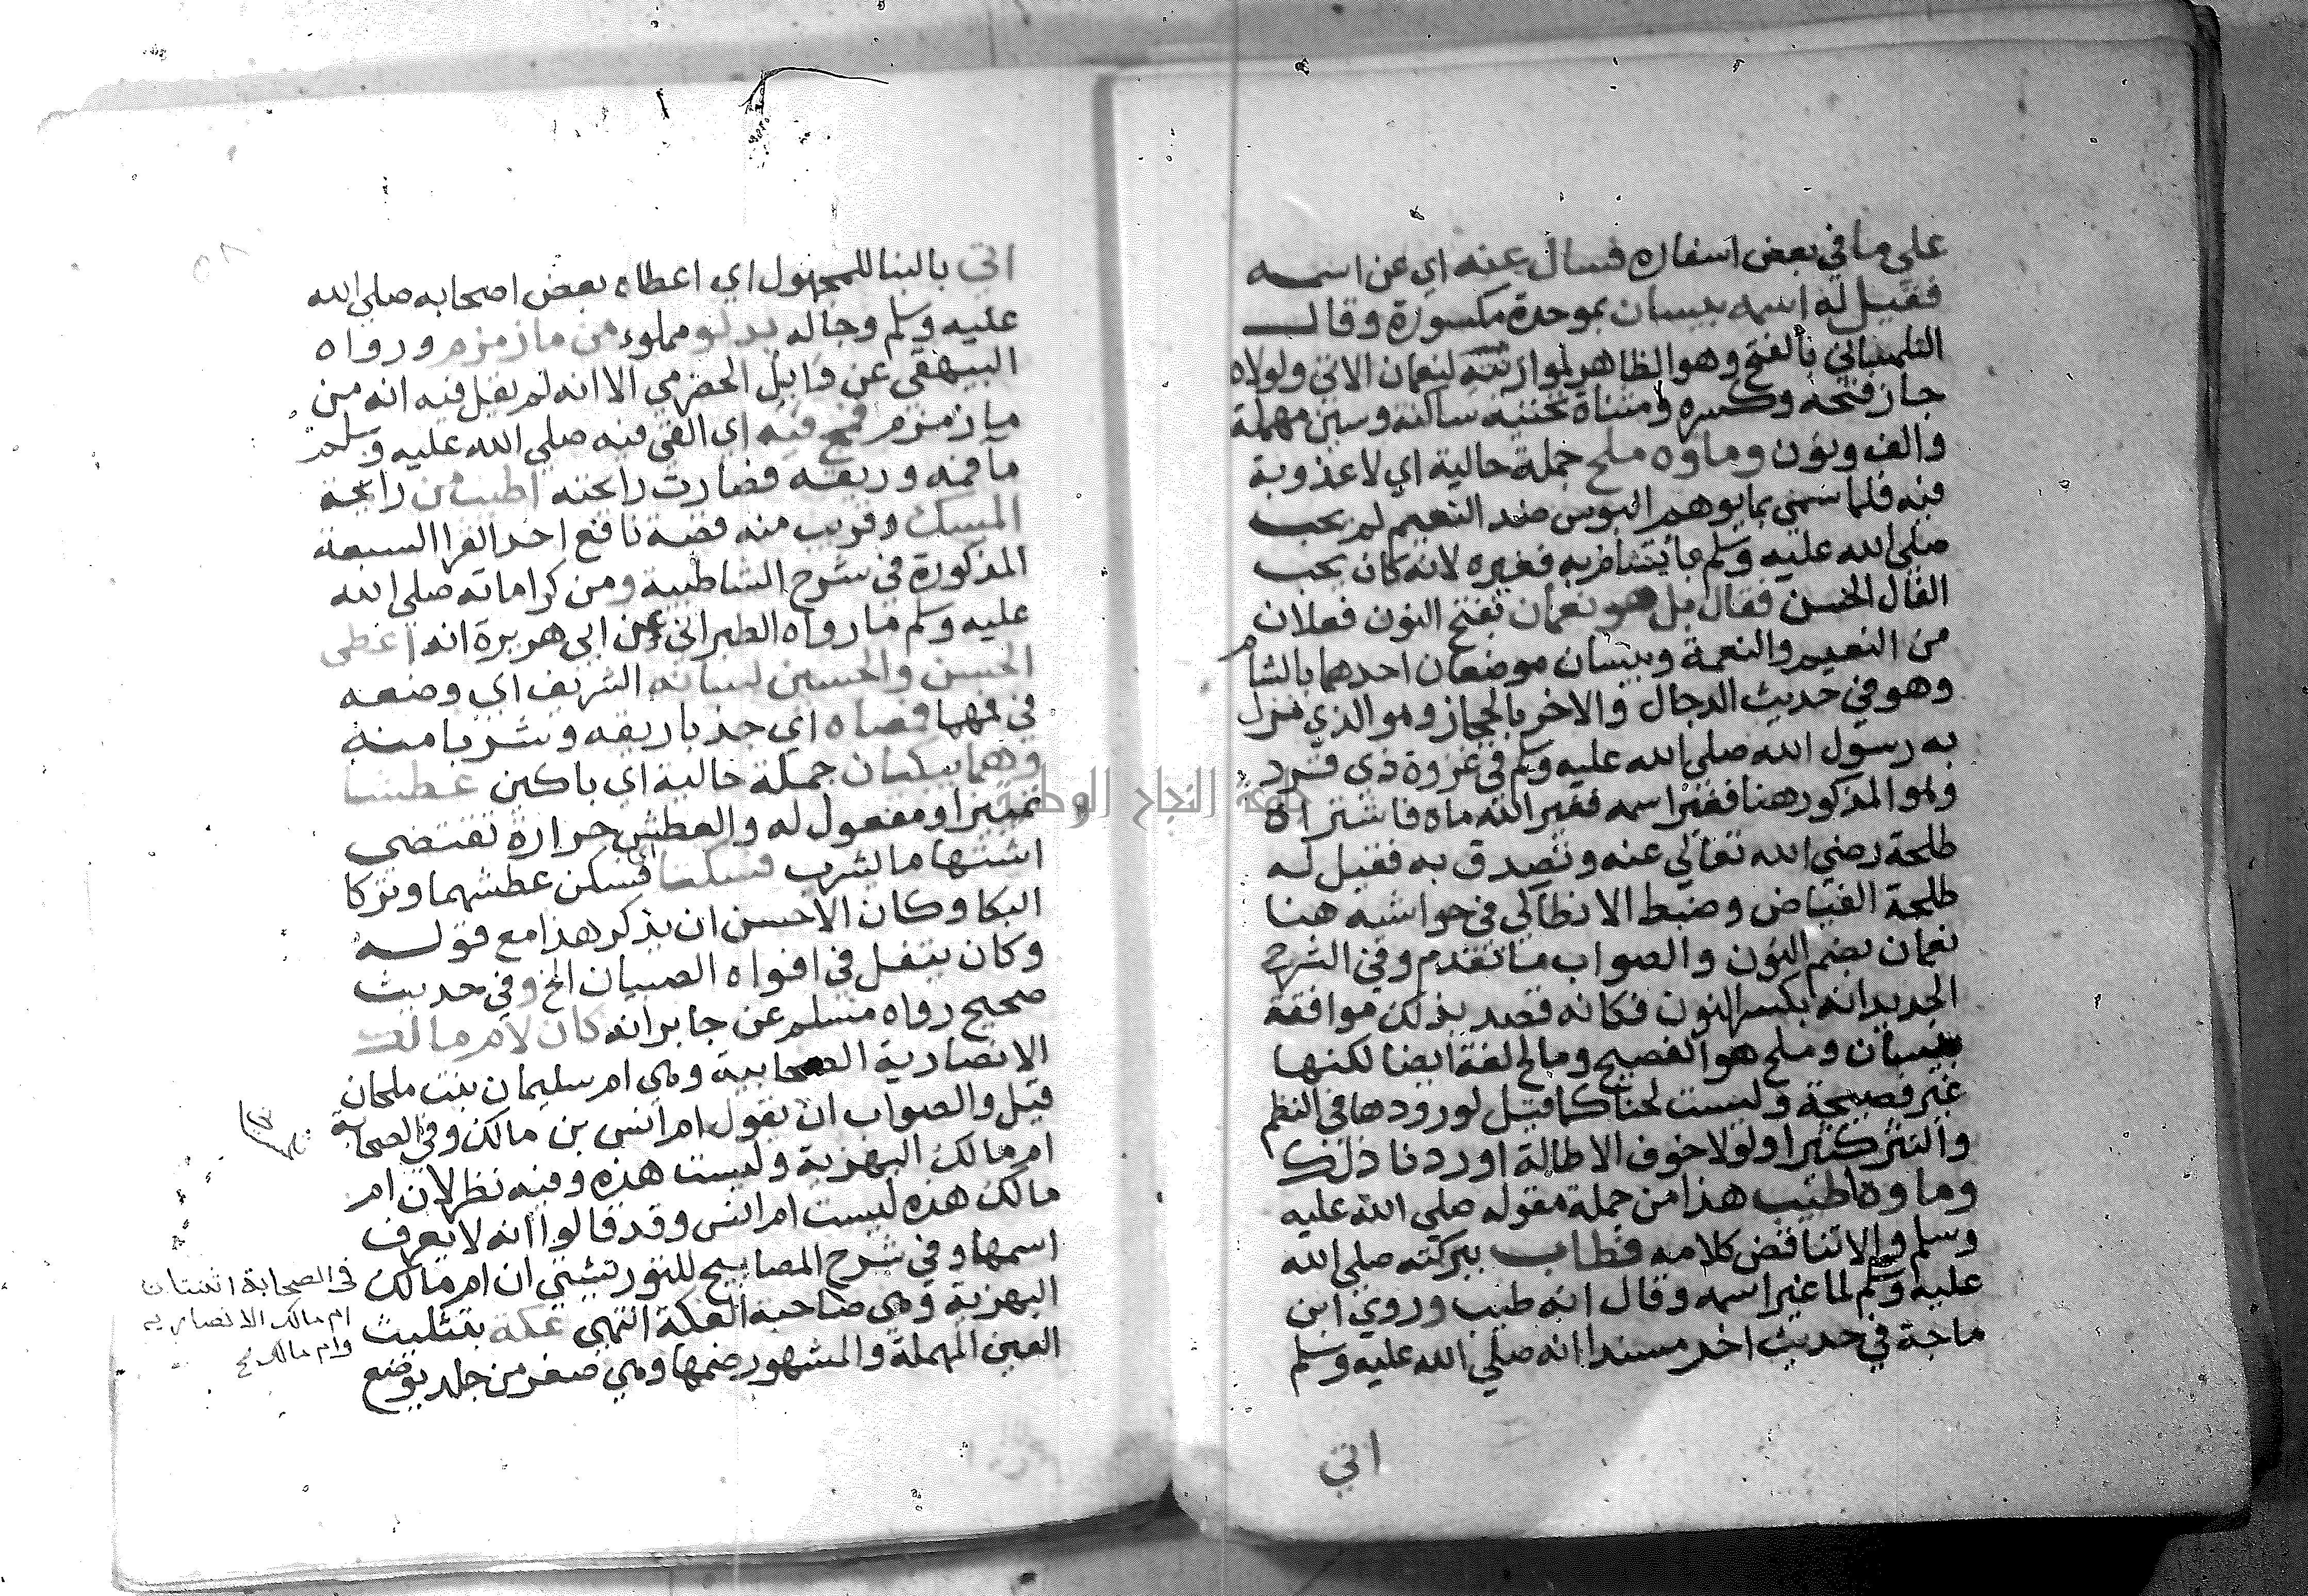 علي ما في بعض اسفاره فسال عنه اي عن اسمه
فقيل له اسمه بيسان بموحدة مكسورة وقال
التلمساني بالفتح وهو الظاهر لموازنته لنعمان الاتي ولولاه
جاز فتحه وكسره ومثناة تحتيه ساكنه وسين مهملة
والف ونون وماوه ملح جملة حالية اي لا عذوبة
فيه فلما سمي بما يوهم البوس ضد النعيم لم يحب
صلي الله عليه وسلم ما يتشام به فغيره لانه كان يحب
الفال الحسن فقال بل هو نعمان بفتح النون فعلان
من النعيم والنعمة وبيسان موضعان احدهما بالشام
وهو في حديث الدجال والاخر بالحجاز وهو الذي نزل
به رسول الله صلي الله عليه وسلم في غزوة ذي قرد
وهو المذكور هنا فغير اسمه فغير الله ماه فاشتراه
طلحة رضي الله تعالي عنه وتصدق به فقيل له
طلحة الفياض وضبط الانطاكي في حواشيه هنا
نعمان بضم النون والصواب ما تقدم وفي الشرح
الجديد انه بكسر النون فكانه قصد بذلك موافقة
بيسان وملح هو الفصيح ومالح لغة ايضا لكنها
غير فصيحة وليست لحنا كما قيل لورودها في النظم
والنثر كثيرا ولولا خوف الاطالة اوردنا ذلك
وماوه طيب هذا من جملة مقوله صلي الله عليه
وسلم والا تناقض كلامه فطاب ببركته صلي الله
عليه وسلم لما غير اسمه وقال انه طيب وروي ابن
ماجة في حديث اخر مسندا انه صلي الله عليه وسلم
اتي
اتي بالبنا للمجهول اي اعطاه بعض اصحابه صلي الله
عليه وسلم وجاله بدلو مملوء من ما زمزم ورواه
البيهقي عن وايل الحضرمي الا انه لم يقل فيه انه من
ما زمزم فمج فيه اي القي فيه صلي الله عليه وسلم
ما فمه وريقه فصارت رائحته اطيب من رائحة
المسك وقريب منه قصة نافع احد القرا السبعة
المذكورة في شرح الشاطبية ومن كراماته صلي الله
عليه وسلم ما رواه الطبراني عن ابي هريرة انه اعطى
الحسن والحسين لسانه الشريف اي وضعه
في فمهما فمصاه اي جذبا ريقه وشربا منه
وهما يبكيان جملة حالية اي باكين عطشا
تمييز او مفعول له والعطش حرارة تقتضي
اشتها ما لشرب فسكتا فسكن عطشهما وتركا
البكا وكان الاحسن ان يذكر هذا مع قوله
وكان يتفل في افواه الصبيان الخ وفي حديث
صحيح رواه مسلم عن جابر انه كان لام مالك
الانصارية الصحابية وهي ام سليمان بنت ملحان
قيل والصواب ان يقول ام انس بن مالك وفي الصحابة
ام مالك البهزية وليست هذه وفيه نظر لان ام
مالك هذه ليست ام انس وقد قالوا انه لا يعرف
اسمها وفي شرح المصابيح للتوربشتي ان ام مالك
البهزية وهي صاحبة العكة انتهي عكة بتثليث
العين المهملة والمشهور ضمها وهي صغر من جلد يوضع
في الصحابة اثنتان
ام مالك الانصاريه
وام مالك
جامعة النجاح الوطنية